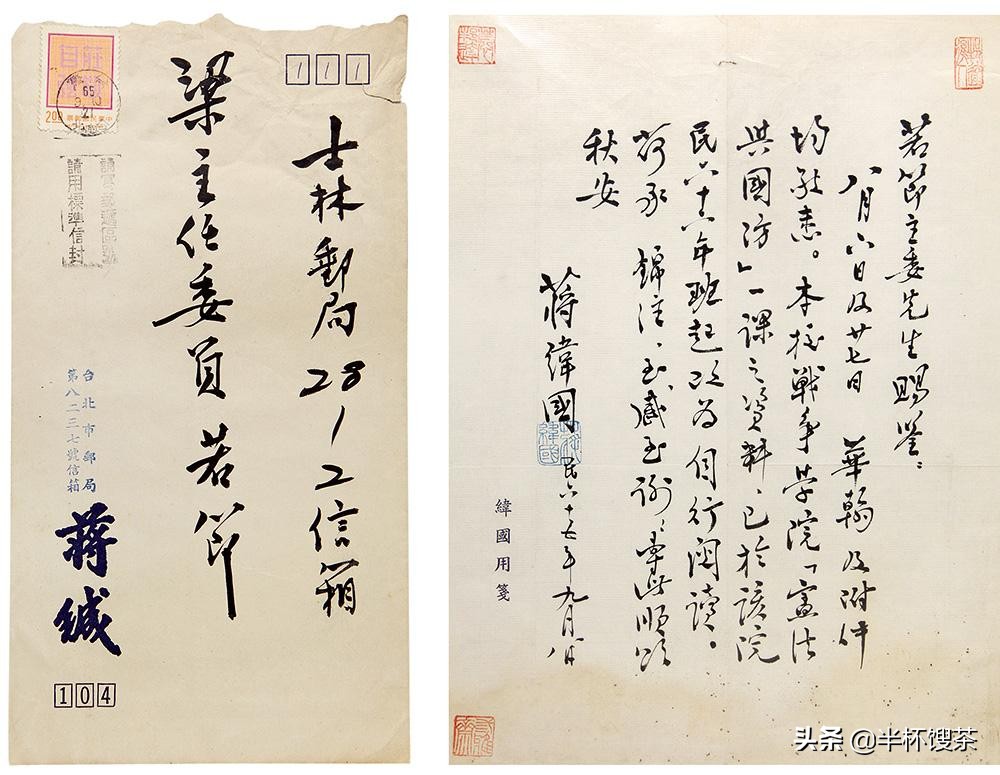 111
士林郵局28/2信箱
梁主任委員若節
2.00
65
請寫郵遞區號
請用標準信封
台北市郵局
第八二三七號信箱
蔣緘
104
若節主委先生賜鑒：
八月六日及廿七日 華翰及附件
均敬悉。本校戰爭學院「憲法
與國防」一課之資料、已於該院
民六十六年班起改為自行閱讀。
荷承 錦注、至感至謝、耑此順頌
秋安
蔣緯國 民六十七年九月八日
緯國用箋
头条 @半杯馊茶